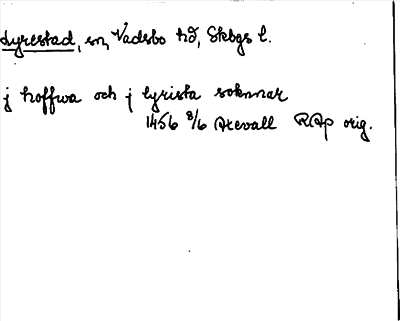 Lyrestad, sn, Vadsbo hd, Skbgs l.
j hoffwa och j lyrista soknnar
1456 8/6 Axevall RAp orig.